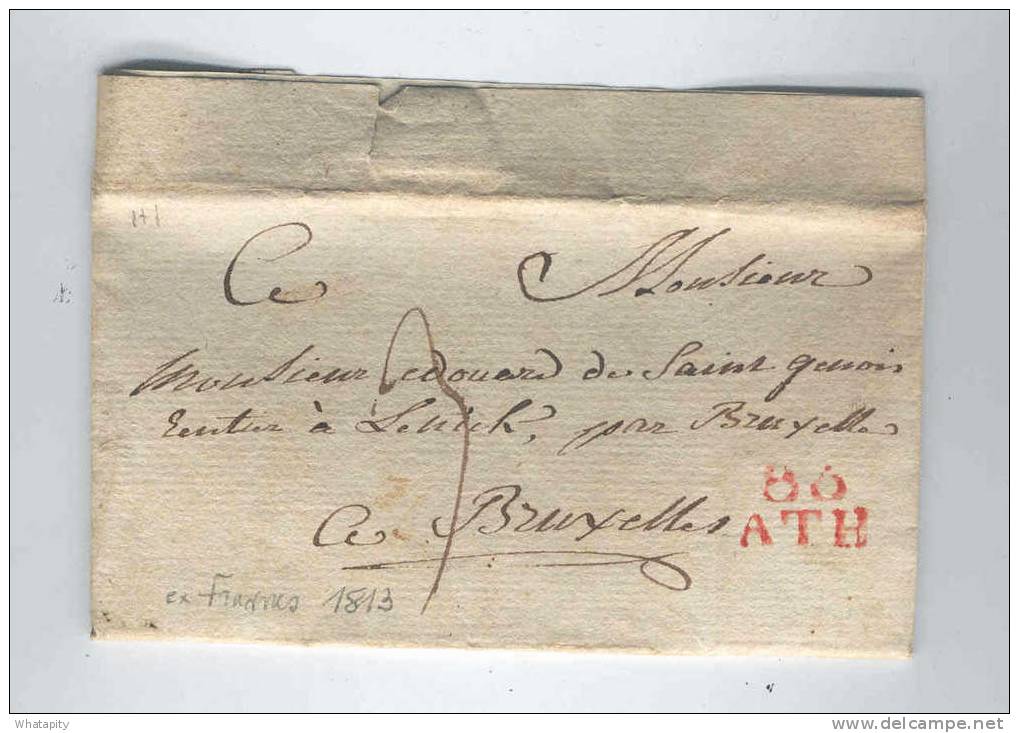 A Monsieur
Monsieur edouard de Saint genois
Rentier à Lennick, par Bruxelles
86
ATH
A Bruxelles
3
ex Frasnes 1813
Whatapity
www.delcampe.net